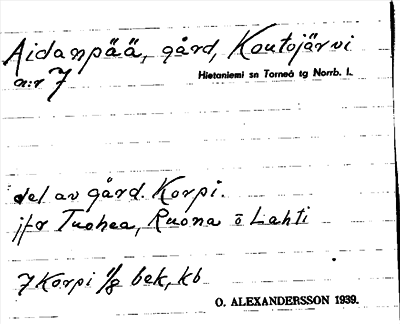 Aidanpää, gård, Koutojärvi
n:r 7
Hietaniemi sn Torneå tg Norrb. l.
del av gård. Korpi.
jfr Tuohea, Ruona o Lahti
7 Korpi 1/8 bek, kb
O. ALEXANDERSSON 1939.